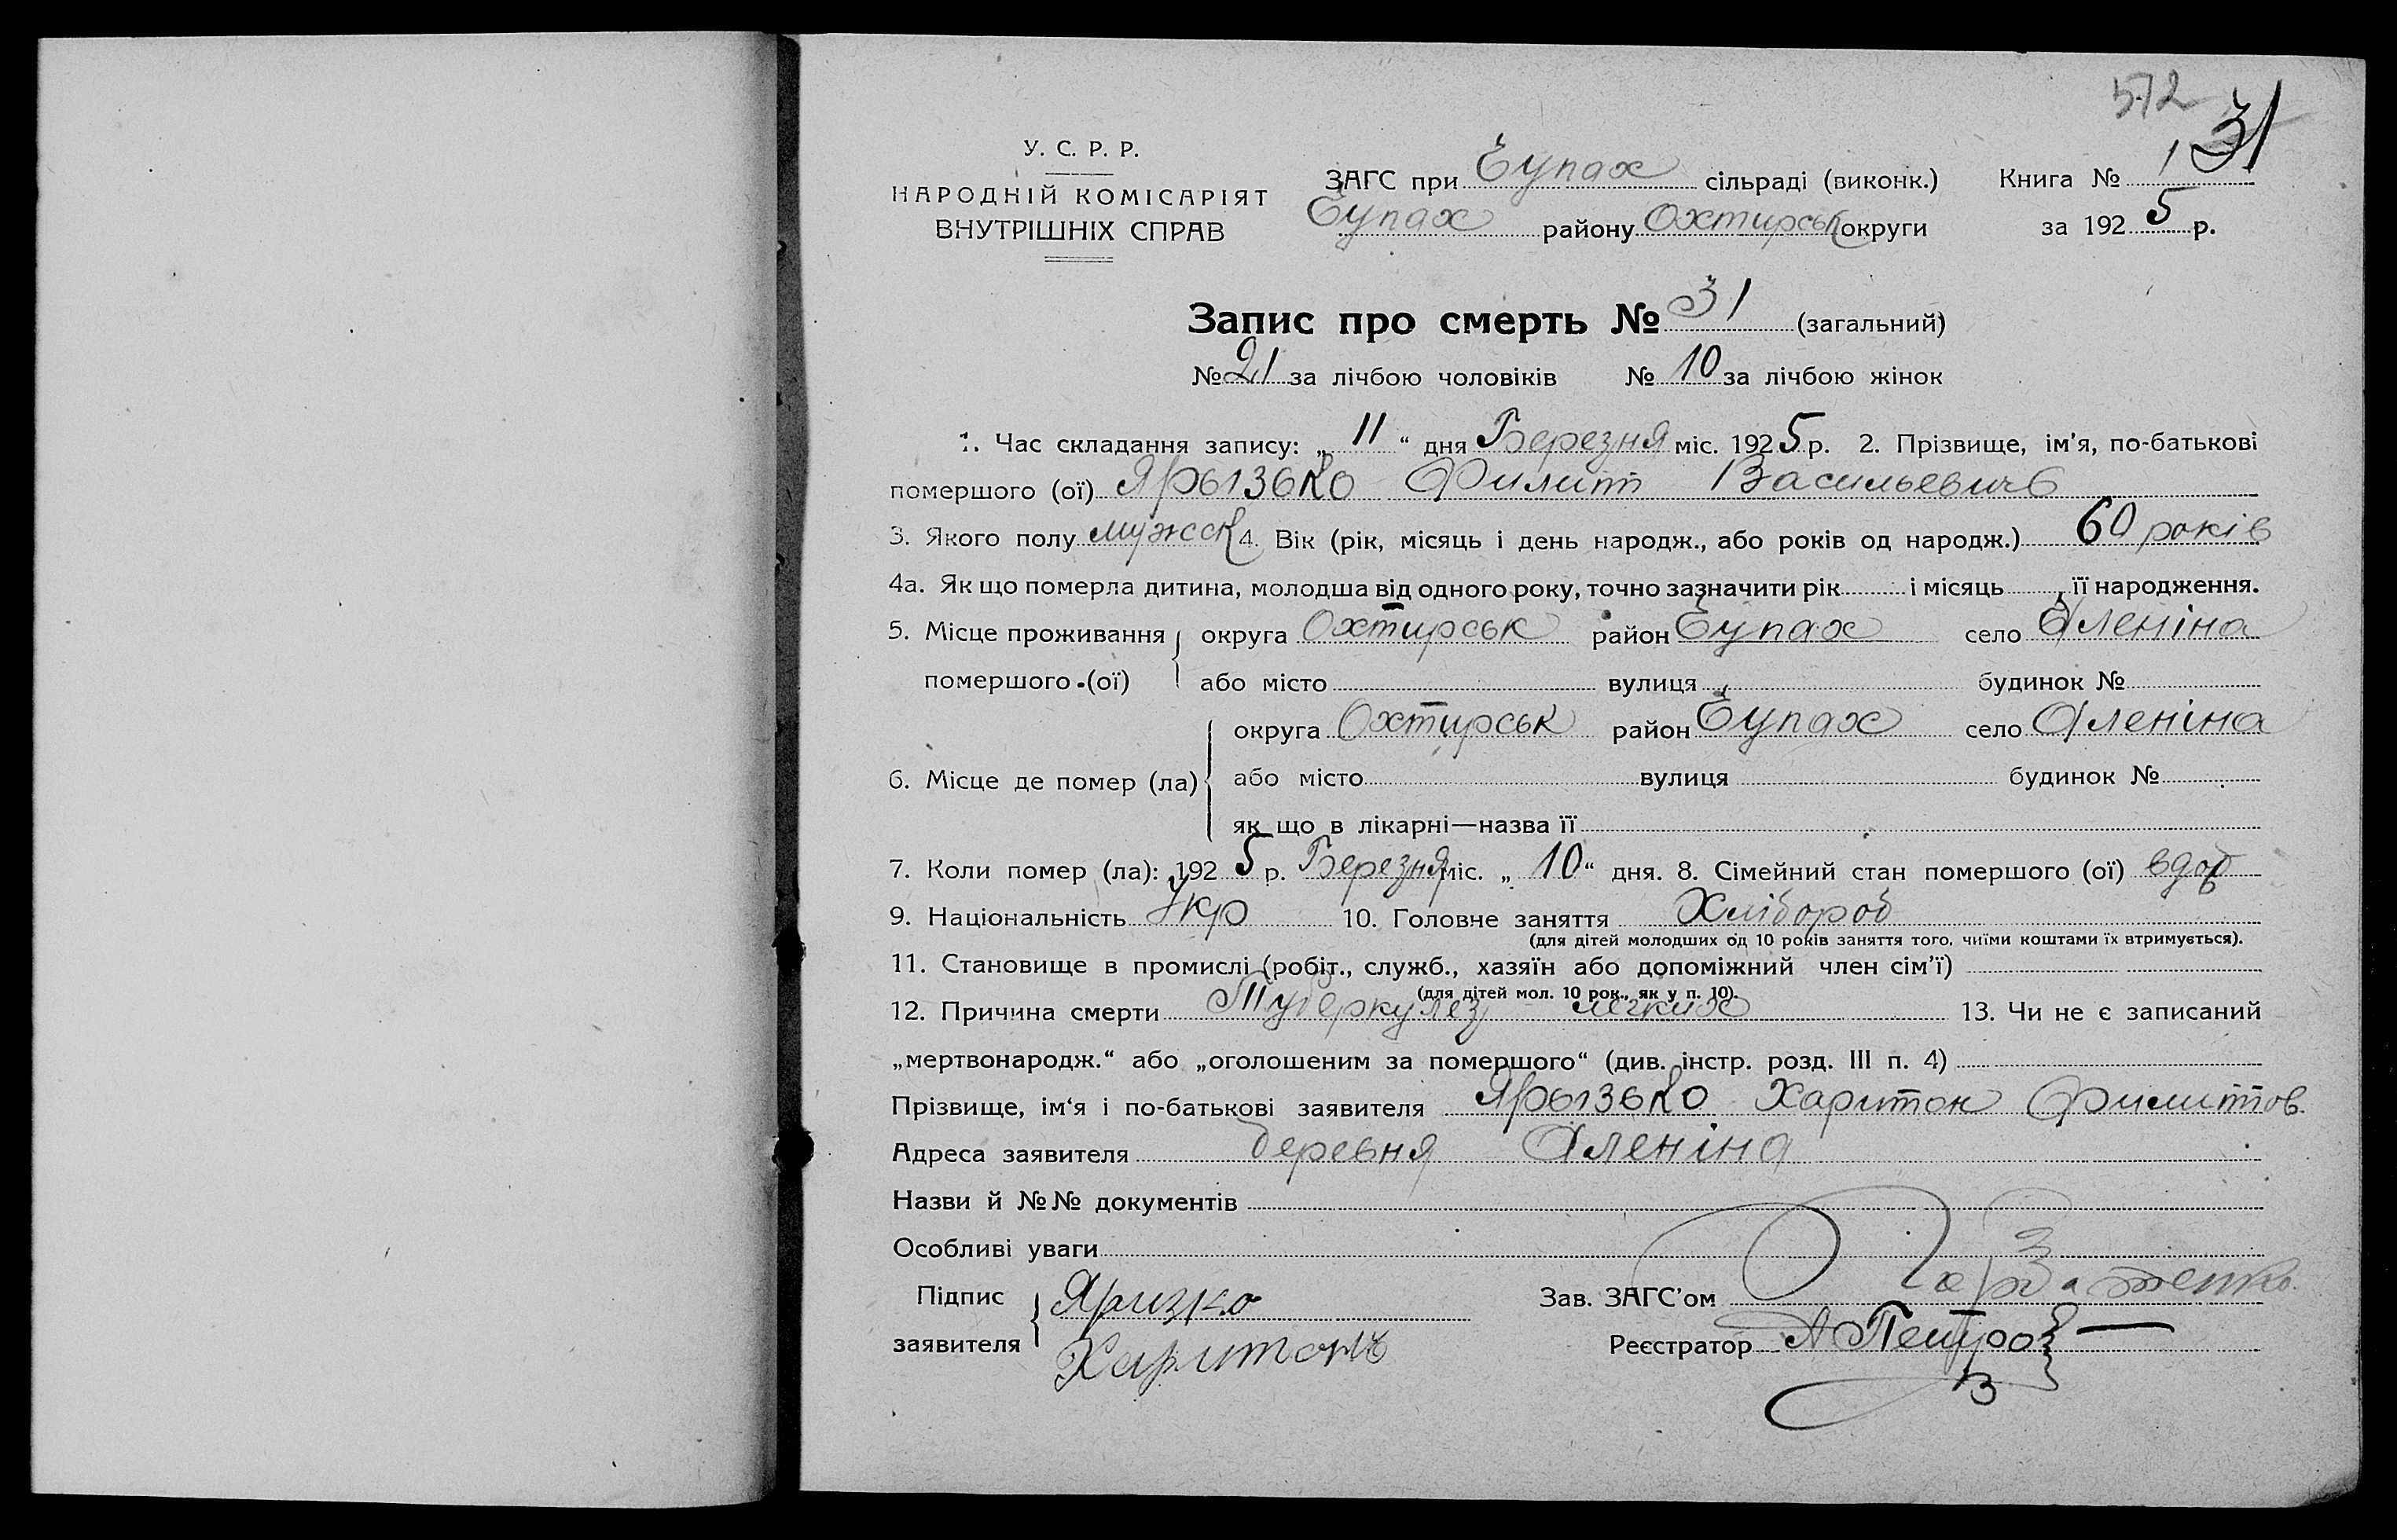 572
31
У. С. Р. Р.
НАРОДНІЙ КОМІСАРІЯТ
ВНУТРІШНІХ СПРАВ
ЗАГС при Єупах сільраді (виконк.) Книга № 1
Єупах району Охтирськ округи за 1925 р.
Запис про смерть № 31 (загальний)
№ 21 за лічбою чоловіків № 10 за лічбою жінок
1. Час складання запису: „ 11 “ дня Березня міс. 1925 р. 2. Прізвище, ім'я, по-батькові
помершого (ої) Ярызько Филипп Васильевичь
3. Якого полу мужск 4. Вік (рік, місяць і день народж., або років од народж.) 60 років
4а. Як що померла дитина, молодша від одного року, точно зазначити рік і місяць її народження.
5. Місце проживання помершого (ої) округа Охтирськ район Єупах село Оленіна
або місто вулиця будинок №
6. Місце де помер (ла) округа Охтирськ район Єупах село Оленіна
або місто вулиця будинок №
як що в лікарні—назва її
7. Коли помер (ла): 1925 р. Березня міс. „ 10 “ дня. 8. Сімейний стан помершого (ої) вдов
9. Національність Укр 10. Головне заняття Хлібороб
(для дітей молодших од 10 років заняття того, чиїми коштами їх втримується).
11. Становище в промислі (робіт., служб., хазяїн або допоміжний член сім'ї)
(для дітей мол. 10 рок., як у п. 10).
12. Причина смерти Туберкулез легких 13. Чи не є записаний
„мертвонародж.“ або „оголошеним за помершого“ (див. інстр. розд. III п. 4)
Прізвище, ім'я і по-батькові заявителя Ярызько Харитон Филиппов
Адреса заявителя деревня Оленіна
Назви й №№ документів
Особливі уваги
Підпис заявителя Яризко Зав. ЗАГС'ом
Харитонъ Реєстратор А Петров